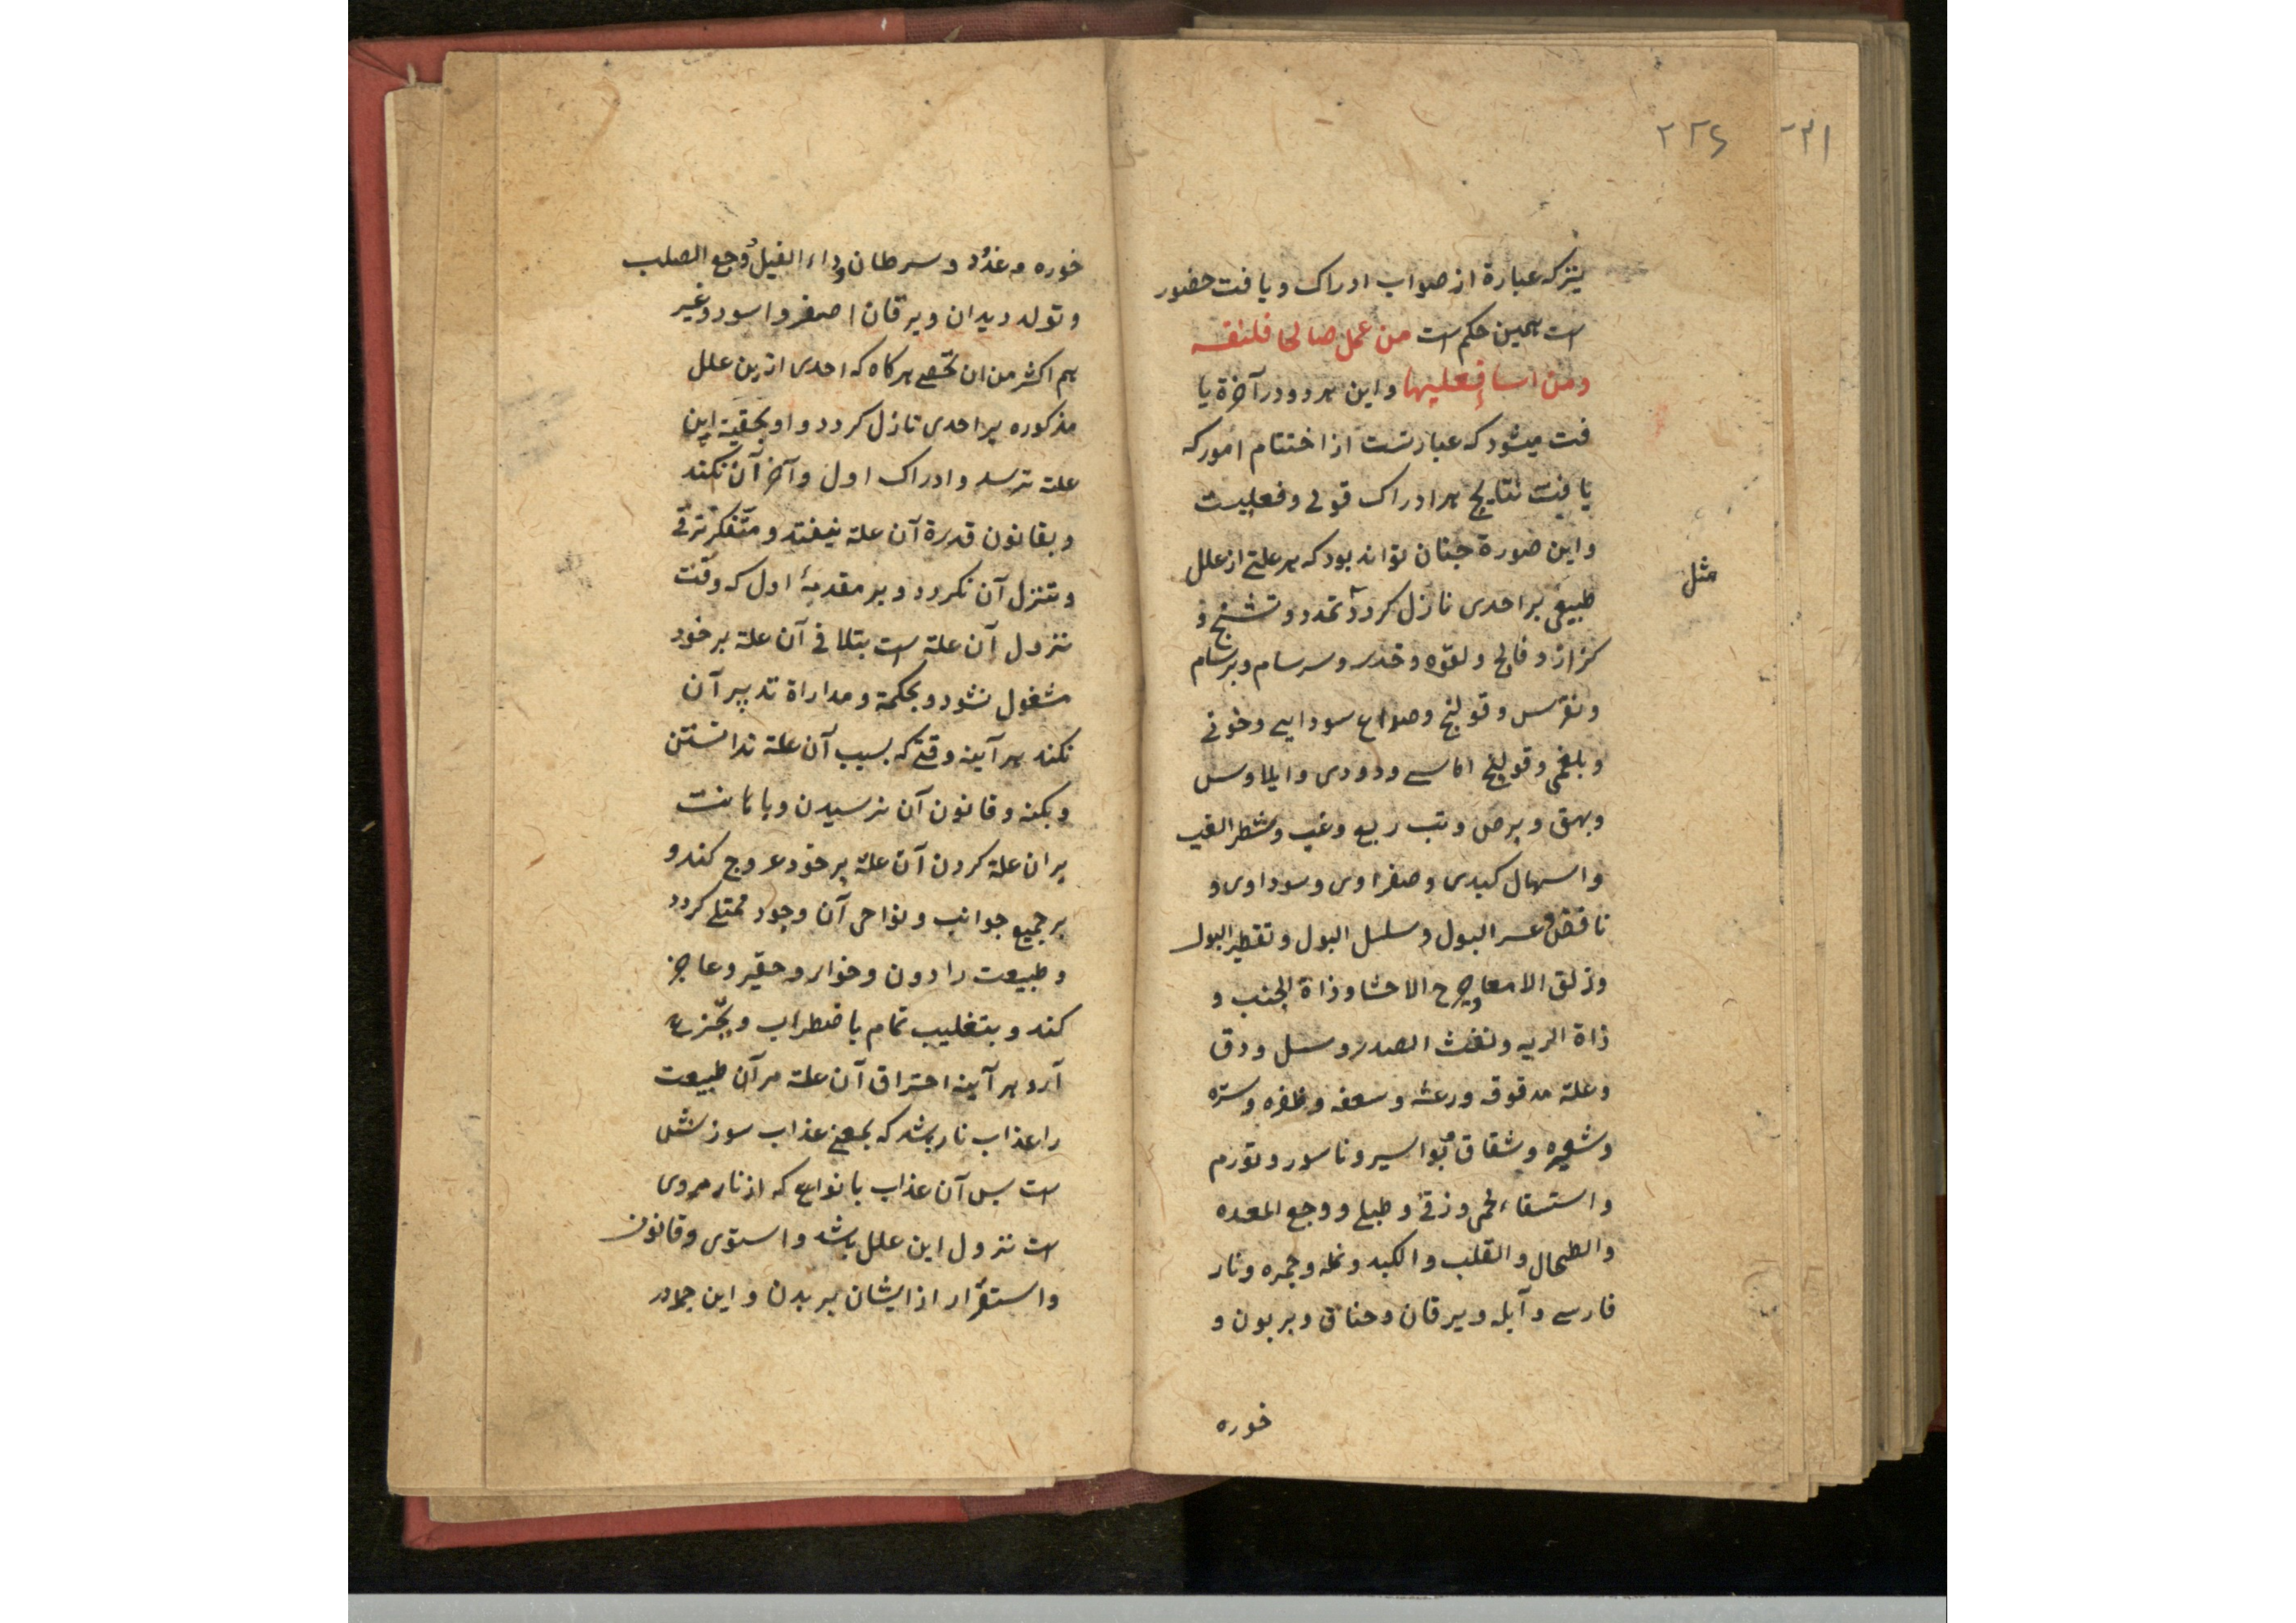 ۲۲۶
۲۳۱
نیز که عبارة از صواب ادراک و یافت حضور
است همین حکم است من عمل صالحا فلنفسه
ومن اسا فعلیها و این هر دو در آخرة یا
فت میشود که عبارتست از اختتام امور که
یافت نتایج هر ادراک قولی و فعلیست
و این صورة چنان تواند بود که هر علتی از علل
مثل
طبیعی بر احدی نازل کردد تمدد و تشنج و
کزاز و فالج و لقوه و خدر و سرسام و برسام
و نقرس و قولنج و صداع سودایی و خونی
و بلغمی و قولنج اماسی و دودی و ایلاوس
و بهق و برص و تب ربع و غب و شطر الغب
و اسهال کبدی و صفراوی و سوداوی و
ناقض و عسر البول و سلسل البول و تقطیر البول
و زلق الامعا و جرح الاحشا و ذاة الجنب و
ذاة الریه و نفث الصدر و سل و دق
و علة مدقوقه و رعشه و سعفه و ظفره و ستره
و شعیره و شقاق و بواسیر و ناسور و تورم
و استسقاء لحمی و زقی و طبلی و وجع المعده
والطحال والقلب والکبد و نمله و جمره و نار
فارسی و آبله و یرقان و خناق و بربون و
خوره
خوره و غدد و سرطان و داء الفیل و وجع الصلب
و تولد دیدان و یرقان اصفر و اسود و غیر
هم اکثر من ان تحصی هر کاه که احدی ازین علل
مذکوره بر احدی نازل کردد و او بحقیة این
علة نرسد و ادراک اول و آخر آن نکند
و بقانون قدرة آن علة نیفتد و متفکر ترقی
و تنزل آن نکردد و بر مقدمهٔ اول که وقت
نزول آن علة است بتلافی آن علة بر خود
مشغول نشود و بحکمة و مداراة تدبیر آن
نکند هر آینه وقتی که بسبب آن علة ندانستن
و بکنه و قانون آن نرسیدن و با
بران علة کردن آن علة بر خود عروج کند و
بر جمیع جوانب و نواحی آن وجود ممتلی کردد
و طبیعت را دون و خوار و حقیر و عاجز
کند و بتغلیب تمام باضطراب و بجزع
آرد هر آینه احتراق آن علة مر آن طبیعت
را عذاب نار باشد که بمعنی عذاب سوزشی
است پس آن عذاب بانواع که از نار مروی
است نزول این علل باشد و استوی و قانون
و استقرار از ایشان بر بدن و این جمله در